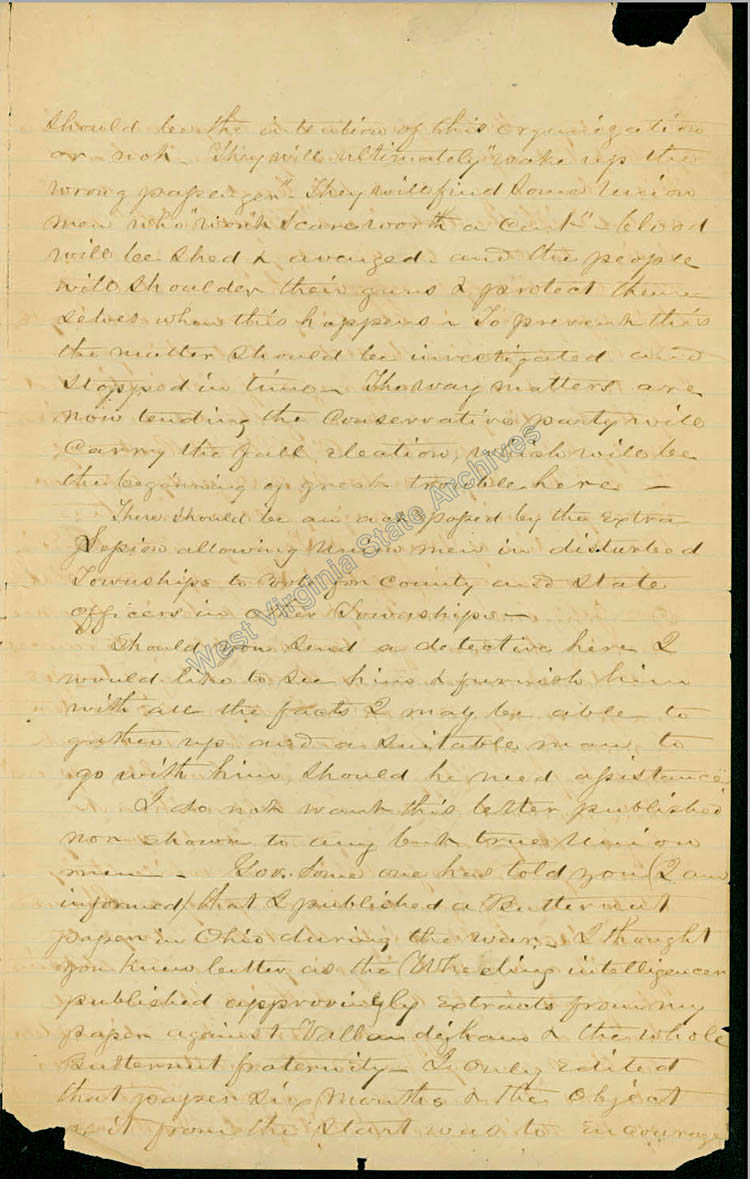 should be the intention of this organization
or not – They will ultimately "wake up the
wrong passenger" – They will find some Union
men who "wont scare worth a cent" – blood
will be shed & avenged and the people
will shoulder their guns & protect them-
selves when this happens. To prevent this
the matter should be investigated and
stopped in time – The way matters are
now tending the Conservative party will
carry the fall election, which will be
the beginning of great trouble here –
There should be an act passed by the extra
Session allowing Union men in disturbed
Townships to vote for County and State
officers in other Townships –
Should you send a detective here I
would like to see him & furnish him
with all the facts I may be able to
gather up and a suitable man to
go with him should he need assistance
I do not want this letter published
nor shown to any but true Union
men – Gov. Some one has told you (I am
informed) that I published a Butternut
paper in Ohio during the war – I thought
you knew better as the Wheeling intelligencer
published approvingly extracts from my
paper against Vallandigham & the whole
Butternut fraternity – I only edited
that paper six months & the object
of it from the start was to encourage
West Virginia State Archives